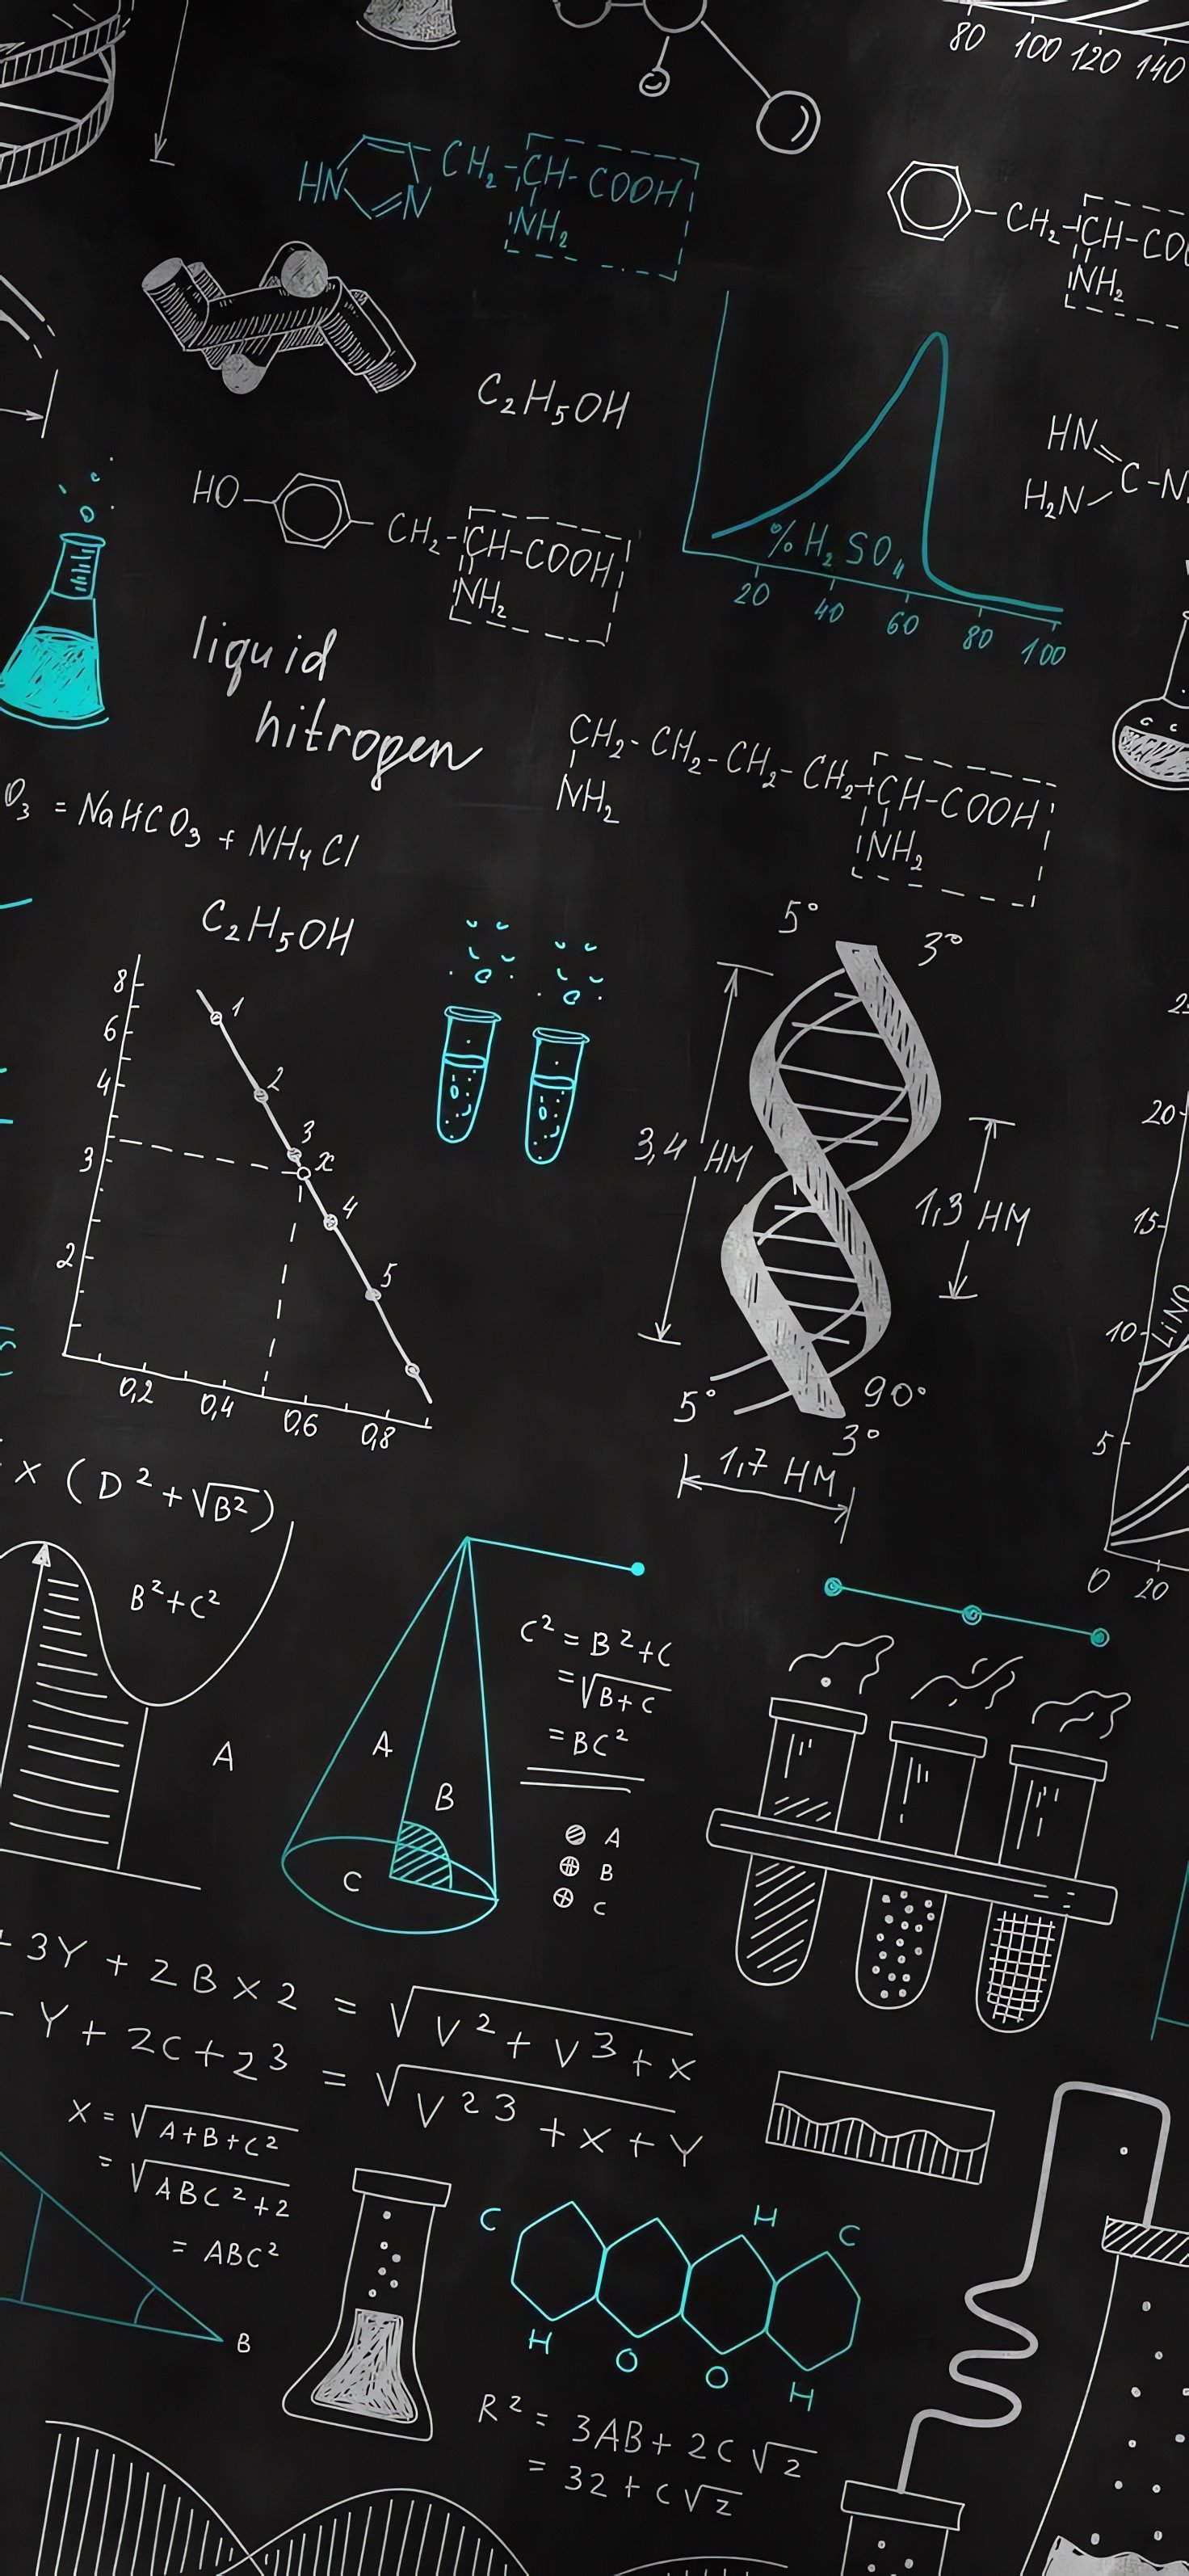 80 100 120 140
HN N CH₂-CH-COOH
NH₂
CH₂-CH-CO
NH₂
C₂H₅OH
HN
C-N
H₂N
HO CH₂-CH-COOH
NH₂
% H₂SO₄
20 40 60 80 100
liquid
hitrogen
CH₂-CH₂-CH₂-CH₂-CH-COOH
NH₂
NH₂
O₃ = NaHCO₃ + NH₄Cl
C₂H₅OH
5° 3°
8
6
4
3
2
1
2
3
x
4
5
0,2 0,4 0,6 0,8
3,4 HM
1,3 HM
5° 90°
3°
1,7 HM
20
15
10
LiNO
5
0 20
x (D² + √B²)
B²+C²
A
A
B
C
C² = B²+C
= √B+C
= BC²
A
B
C
+ 3Y + 2B x 2 = √V² + V³ + x
- Y + 2C + 2³ = √V²³ + x + Y
X = √A+B+C²
= √ABC²+2
= ABC²
B
C H C
H O O H
R² = 3AB + 2C√2
= 32 + C√2